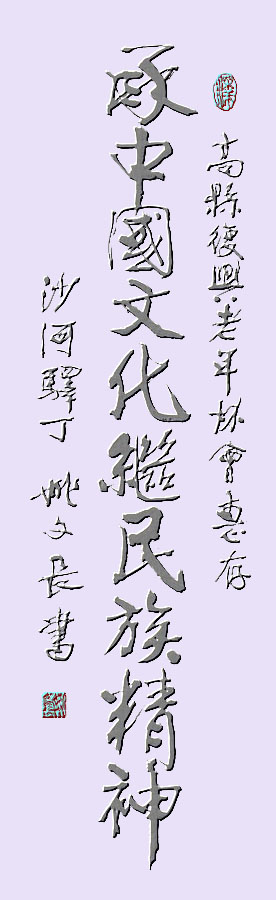 高縣復興老年會惠存
承中國文化繼民族精神
沙河驛丁 姚文長書